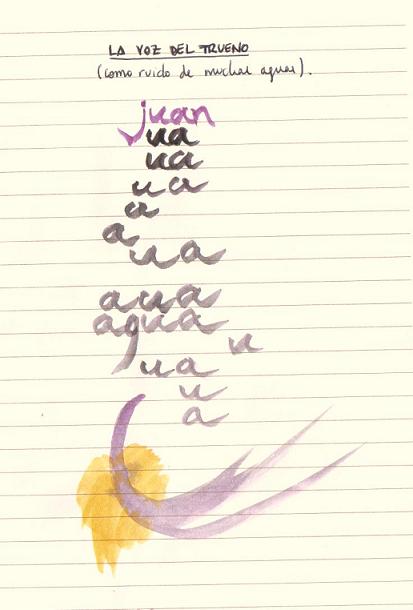 LA VOZ DEL TRUENO
(como ruido de muchas aguas).
juan
ua
ua
ua
a
a
ua
aua
agua
ua u
u
a